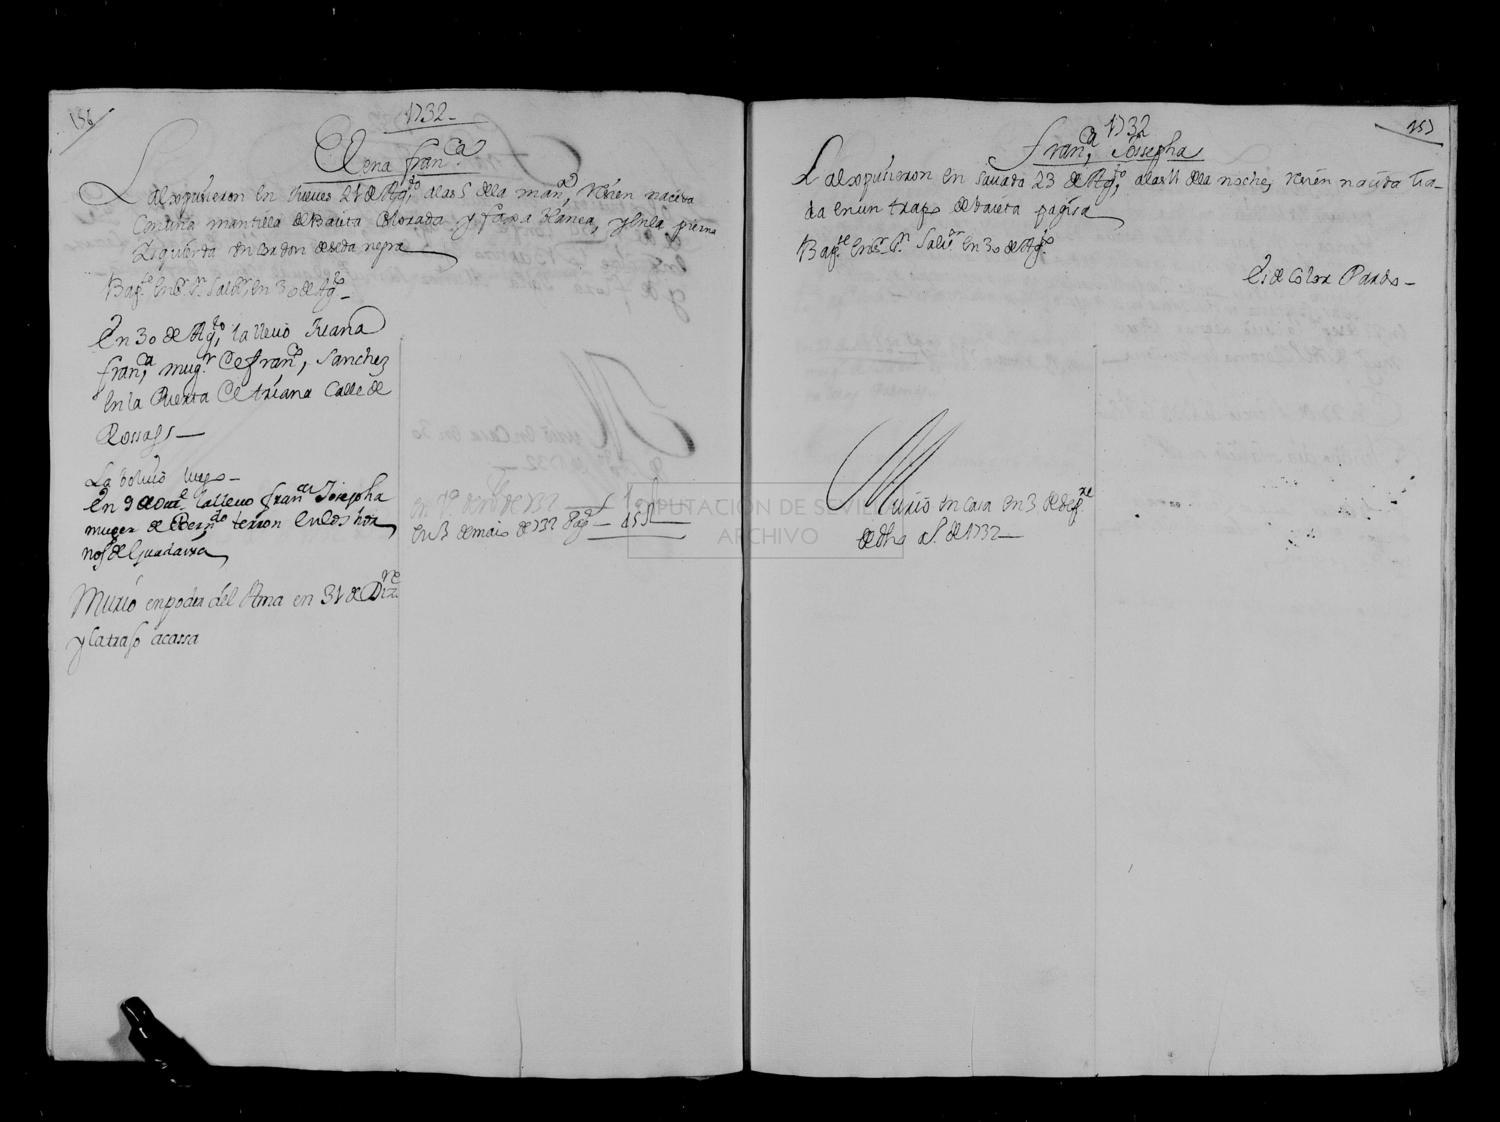 156
1732_
Elena fran.ca
La expusieron en Jueves 21 de Ag.to a las 5 de la mañ.a, resien nacida
Con una mantilla de Baieta Colorada y faxa blanca, y en la pierna
Izquierda un Cordon de seda negra
Bap.da en S.r S.n Salb.r en 30 de Ag.to_
En 30 de Ag.to, la llevo Juana
fran.ca, mug.r de fran.co, Sanchez
en la Puerta de triana Calle de
La bolvio luego_
en 9 de Oct.e la llevo fran.ca Josepha
muger de Bern.do terron en
Murio en poder del Ama en 31 de Diz.re
y la trajo a cassa
en 3 de de 1732 Pag.
157
1732
fran.ca, Jossepha
La expusieron en Savado 23 de Ag.to, a las 11 de la noche, resien nacida lia-
da en un trapo de baieta pagisa
Bap.da en S.r S.n Salb.or en 30 de Ag.to
Es de Color Pardo_
Murio en Casa en 3 de Sep.re
de dho a.o de 1732_
DIPUTACIÓN DE SEVILLA
ARCHIVO